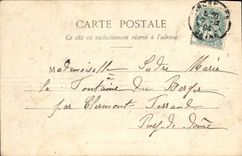 CARTE POSTALE
Ce côté est exclusivement réservé à l'adresse
Mademoiselle Marie
à
la Fontaine du Berger
par Clermont Ferrand
Puy-de-Dôme